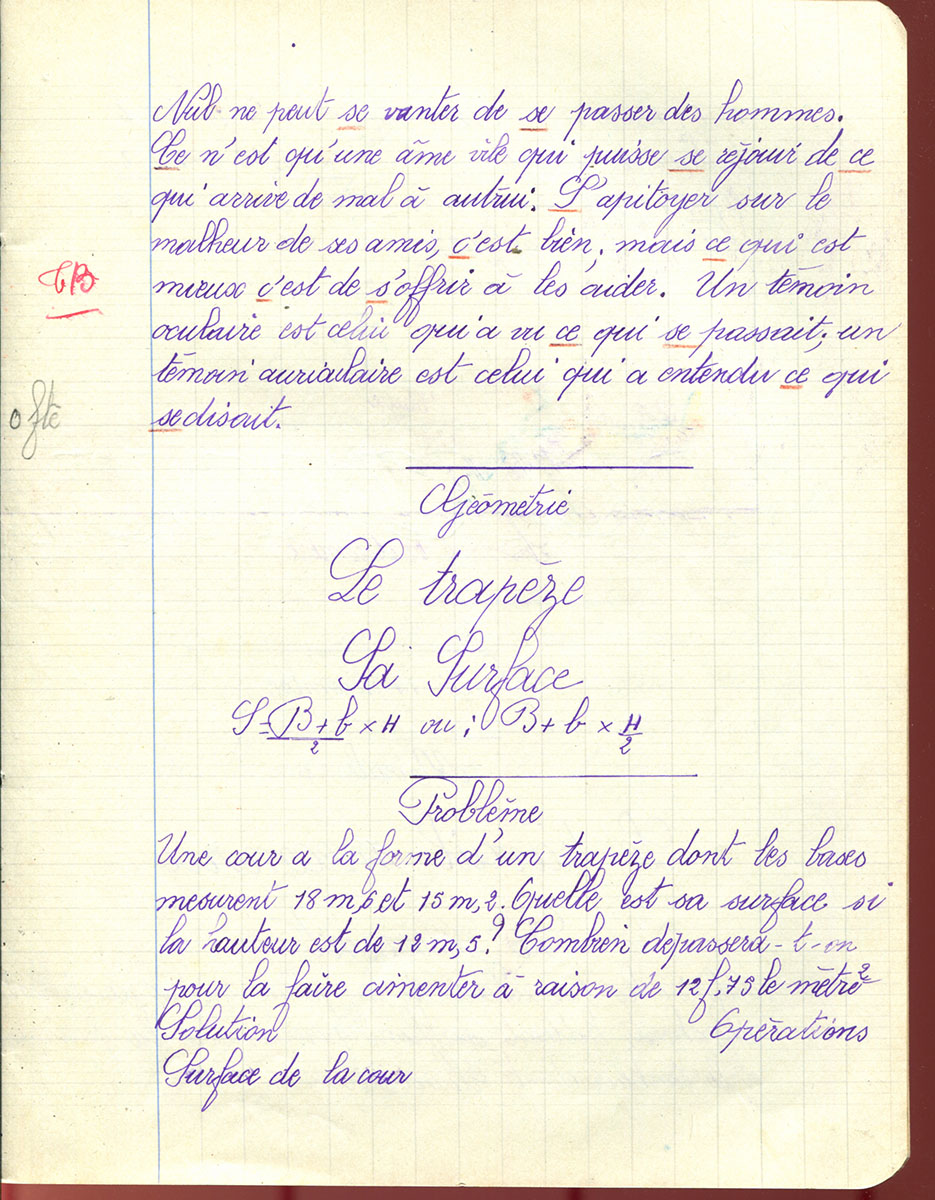 Nul ne peut se vanter de se passer des hommes.
Ce n'est qu'une âme vile qui puisse se réjouir de ce
qui arrive de mal à autrui. S'apitoyer sur le
malheur de ses amis, c'est bien, mais ce qui est
mieux c'est de s'offrir à les aider. Un témoin
TB
oculaire est celui qui a vu ce qui se passait; un
témoin auriculaire est celui qui a entendu ce qui
0 fte
se disait.
Géométrie
Le trapèze
Sa Surface
S = B + b / 2 × H ou : B + b × H / 2
Problème
Une cour a la forme d'un trapèze dont les bases
mesurent 18 m,6 et 15 m,2. Quelle est sa surface si
la hauteur est de 12 m,5 ? Combien dépassera-t-on
pour la faire cimenter à raison de 12 f,75 le mètre²
Solution Opérations
Surface de la cour